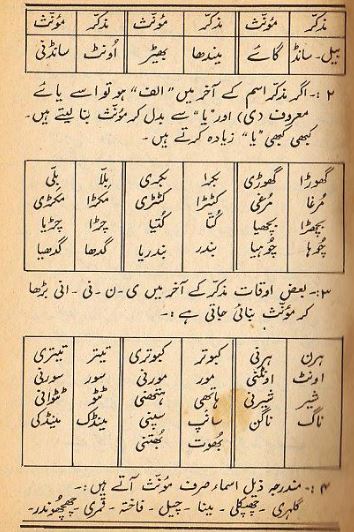 مذکّر مؤنّث مذکّر مؤنّث مذکّر مؤنّث
بیل۔ سانڈ گائے مینڈھا بھیڑ اُونٹ سانڈنی
۲:۔ اگر مذکّر اسم کے آخر میں "الف" ہو تو اسے یائے
معروف (ی) اور "یا" سے بدل کر مؤنّث بنا لیتے ہیں۔
کبھی کبھی "یا" زیادہ کرتے ہیں۔
گھوڑا گھوڑی بکرا بکری بِلّا بِلّی
مُرغا مُرغی کٹڑا کٹڑی مکڑا مکڑی
بچھڑا بچھیا کُتّا کُتیا چڑا چڑیا
چُوہا چُوہیا بندر بندریا گدھا گدھیا
۳:۔ بعض اوقات مذکّر کے آخر میں ی۔ن۔نی۔انی بڑھا
کر مؤنّث بنائی جاتی ہے:۔
ہرن ہرنی کبوتر کبوتری تیتر تیتری
اونٹ اونٹنی مور مورنی سور سورنی
شیر شیرنی ہاتھی ہتھنی ٹٹو ٹٹوانی
ناگ ناگن سانپ سپنی مینڈک مینڈکی
بھُوت بھُتنی
۴:۔ مندرجہ ذیل اسماء صرف مؤنّث آتے ہیں:۔
گلہری۔ چھپکلی۔ مینا۔ چیل۔ فاختہ۔ قمری۔ چھچھوندر۔